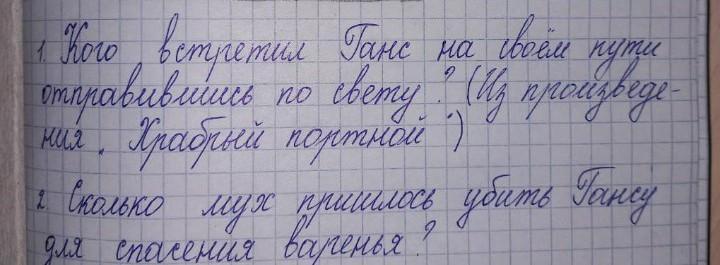 1. Кого встретил Ганс на своём пути
отправившись по свету? (Из произведе-
ния „Храбрый портной")
2. Сколько мух пришлось убить Гансу
для спасения варенья?